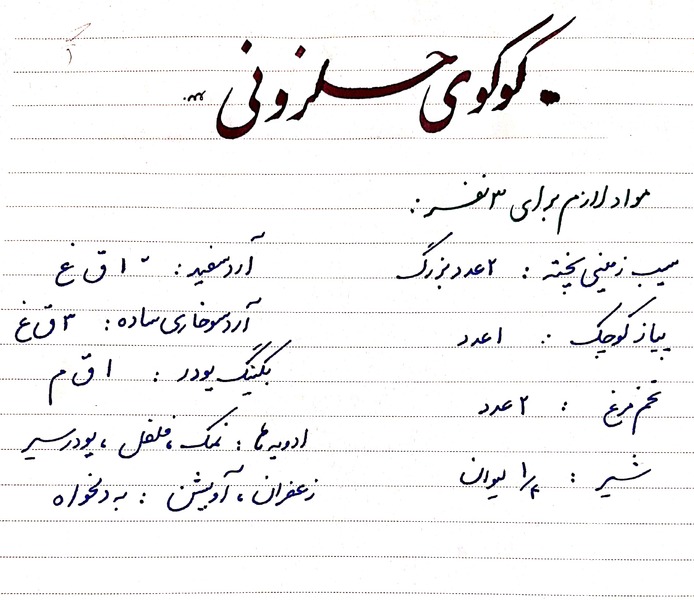 کوکوی حلزونی
مواد لازم برای ۳ نفر:
سیب زمینی پخته : ۲ عدد بزرگ
پیاز کوچک : ۱ عدد
تخم مرغ : ۲ عدد
شیر : ۱/۴ لیوان
آرد سفید : ۱ ق غ
آرد سوخاری ساده : ۳ ق غ
بکینگ پودر : ۱ ق م
ادویه ها : نمک، فلفل، پودر سیر
زعفران، آویشن : به دلخواه